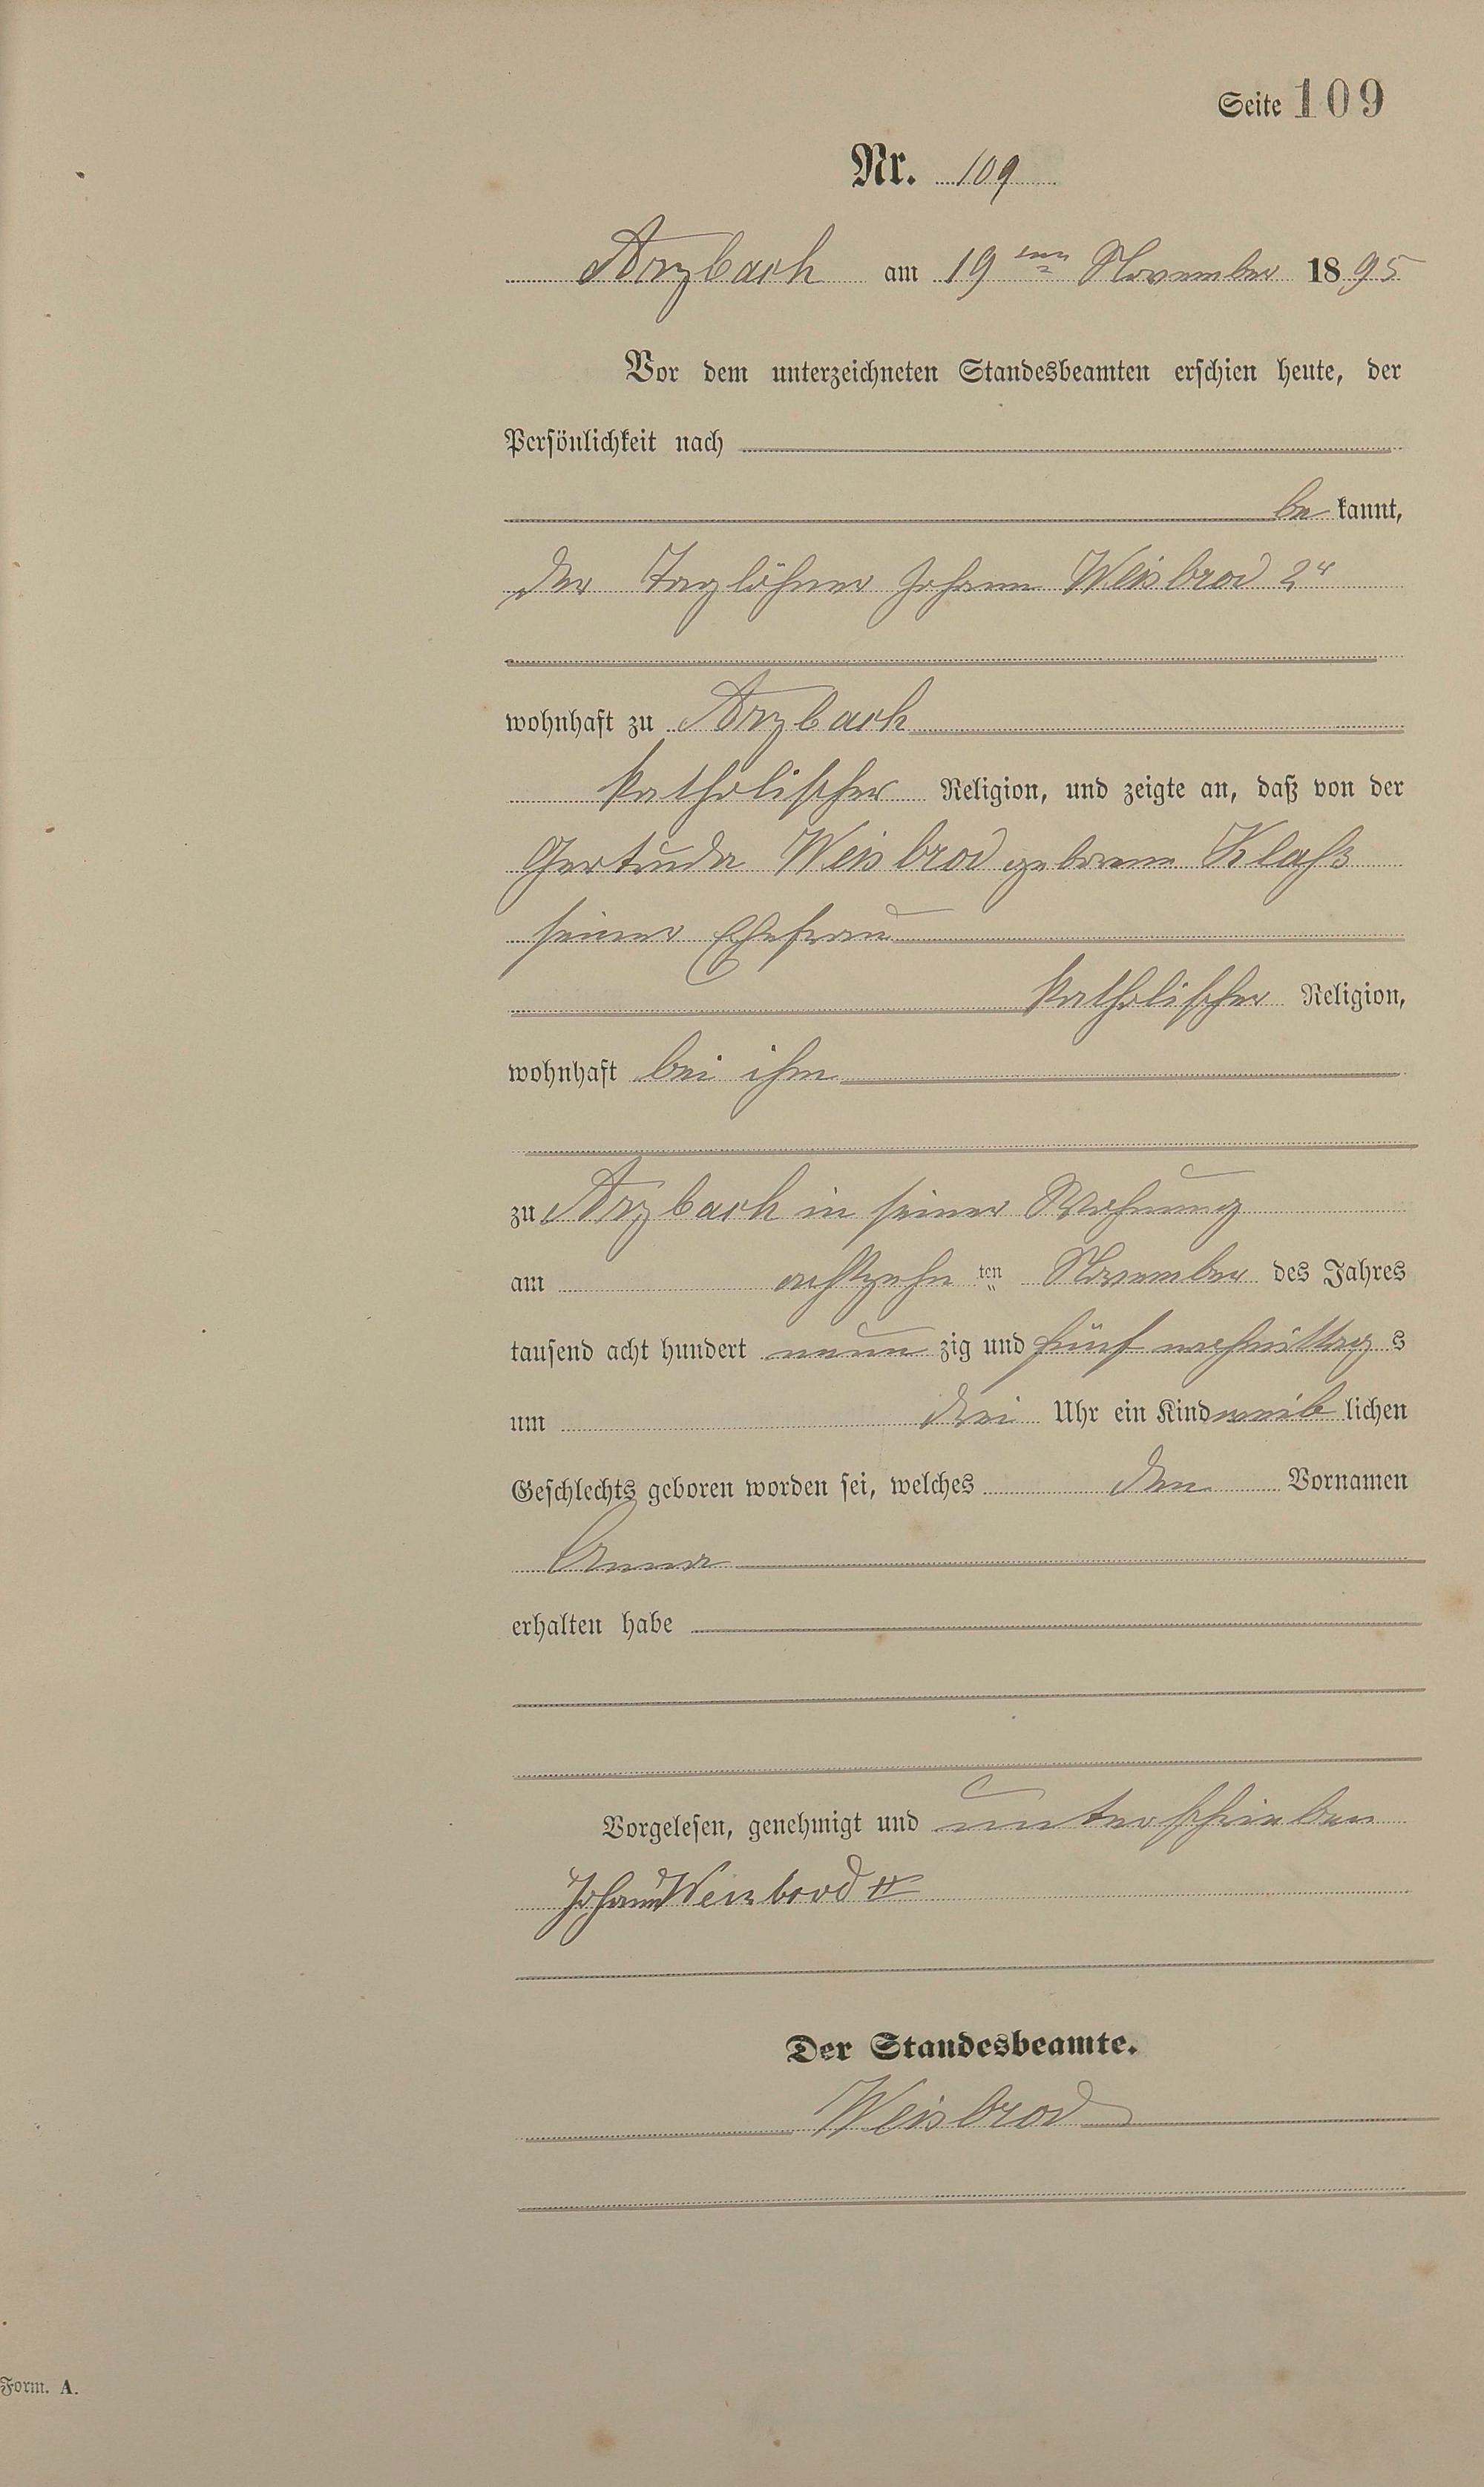 Seite 109
Nr. 109
Arzbach am 19ten November 1895
Vor dem unterzeichneten Standesbeamten erschien heute, der
Persönlichkeit nach
be kannt,
der Taglöhner Johann Weisbrod 2r
wohnhaft zu Arzbach
katholischer Religion, und zeigte an, daß von der
Gertruda Weisbrod geborene Klaß
seiner Ehefrau
katholischer Religion,
wohnhaft bei ihm
zu Arzbach in seiner Wohnung
am achtzehn ten November des Jahres
tausend acht hundert neun zig und fünf nachmittag s
um drei Uhr ein Kind weib lichen
Geschlechts geboren worden sei, welches den Vornamen
Anna
erhalten habe
Vorgelesen, genehmigt und unterschrieben
Johann Weisbrod II
Der Standesbeamte.
Weisbrod
Form. A.